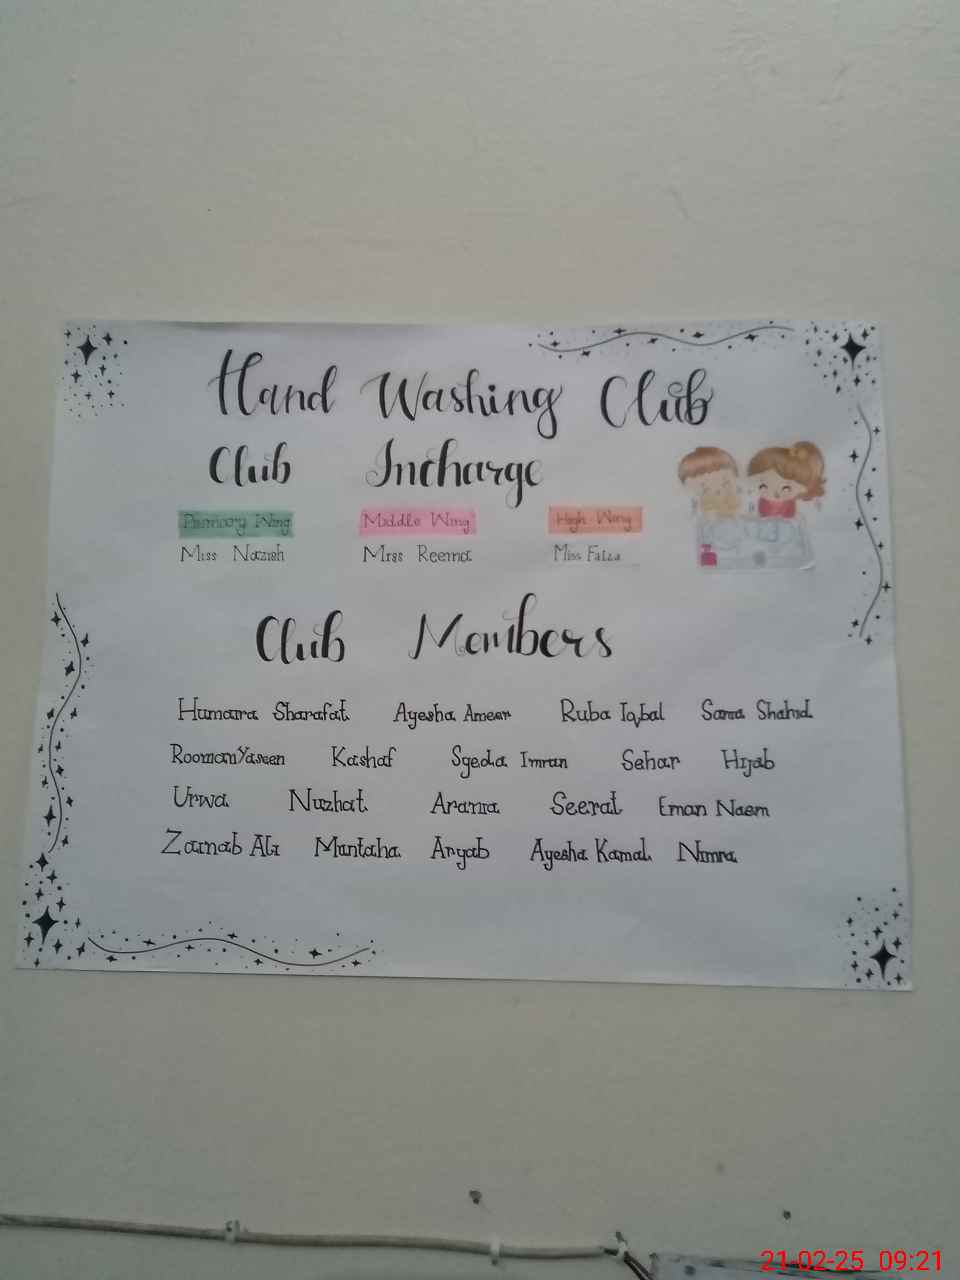 Hand Washing Club
Club Incharge
Primary Wing Middle Wing High Wing
Miss Nazish Mrss Reema Miss Faiza
Club Members
Humaira Sharafat Ayesha Ameer Ruba Iqbal Sana Shahid
Rooman Yaseen Kashaf Syeda Imran Sehar Hijab
Urwa Nuzhat Arania Seerat Eman Naem
Zainab Ali Muntaha Aryab Ayesha Kamal Nimra
21-02-25 09:21